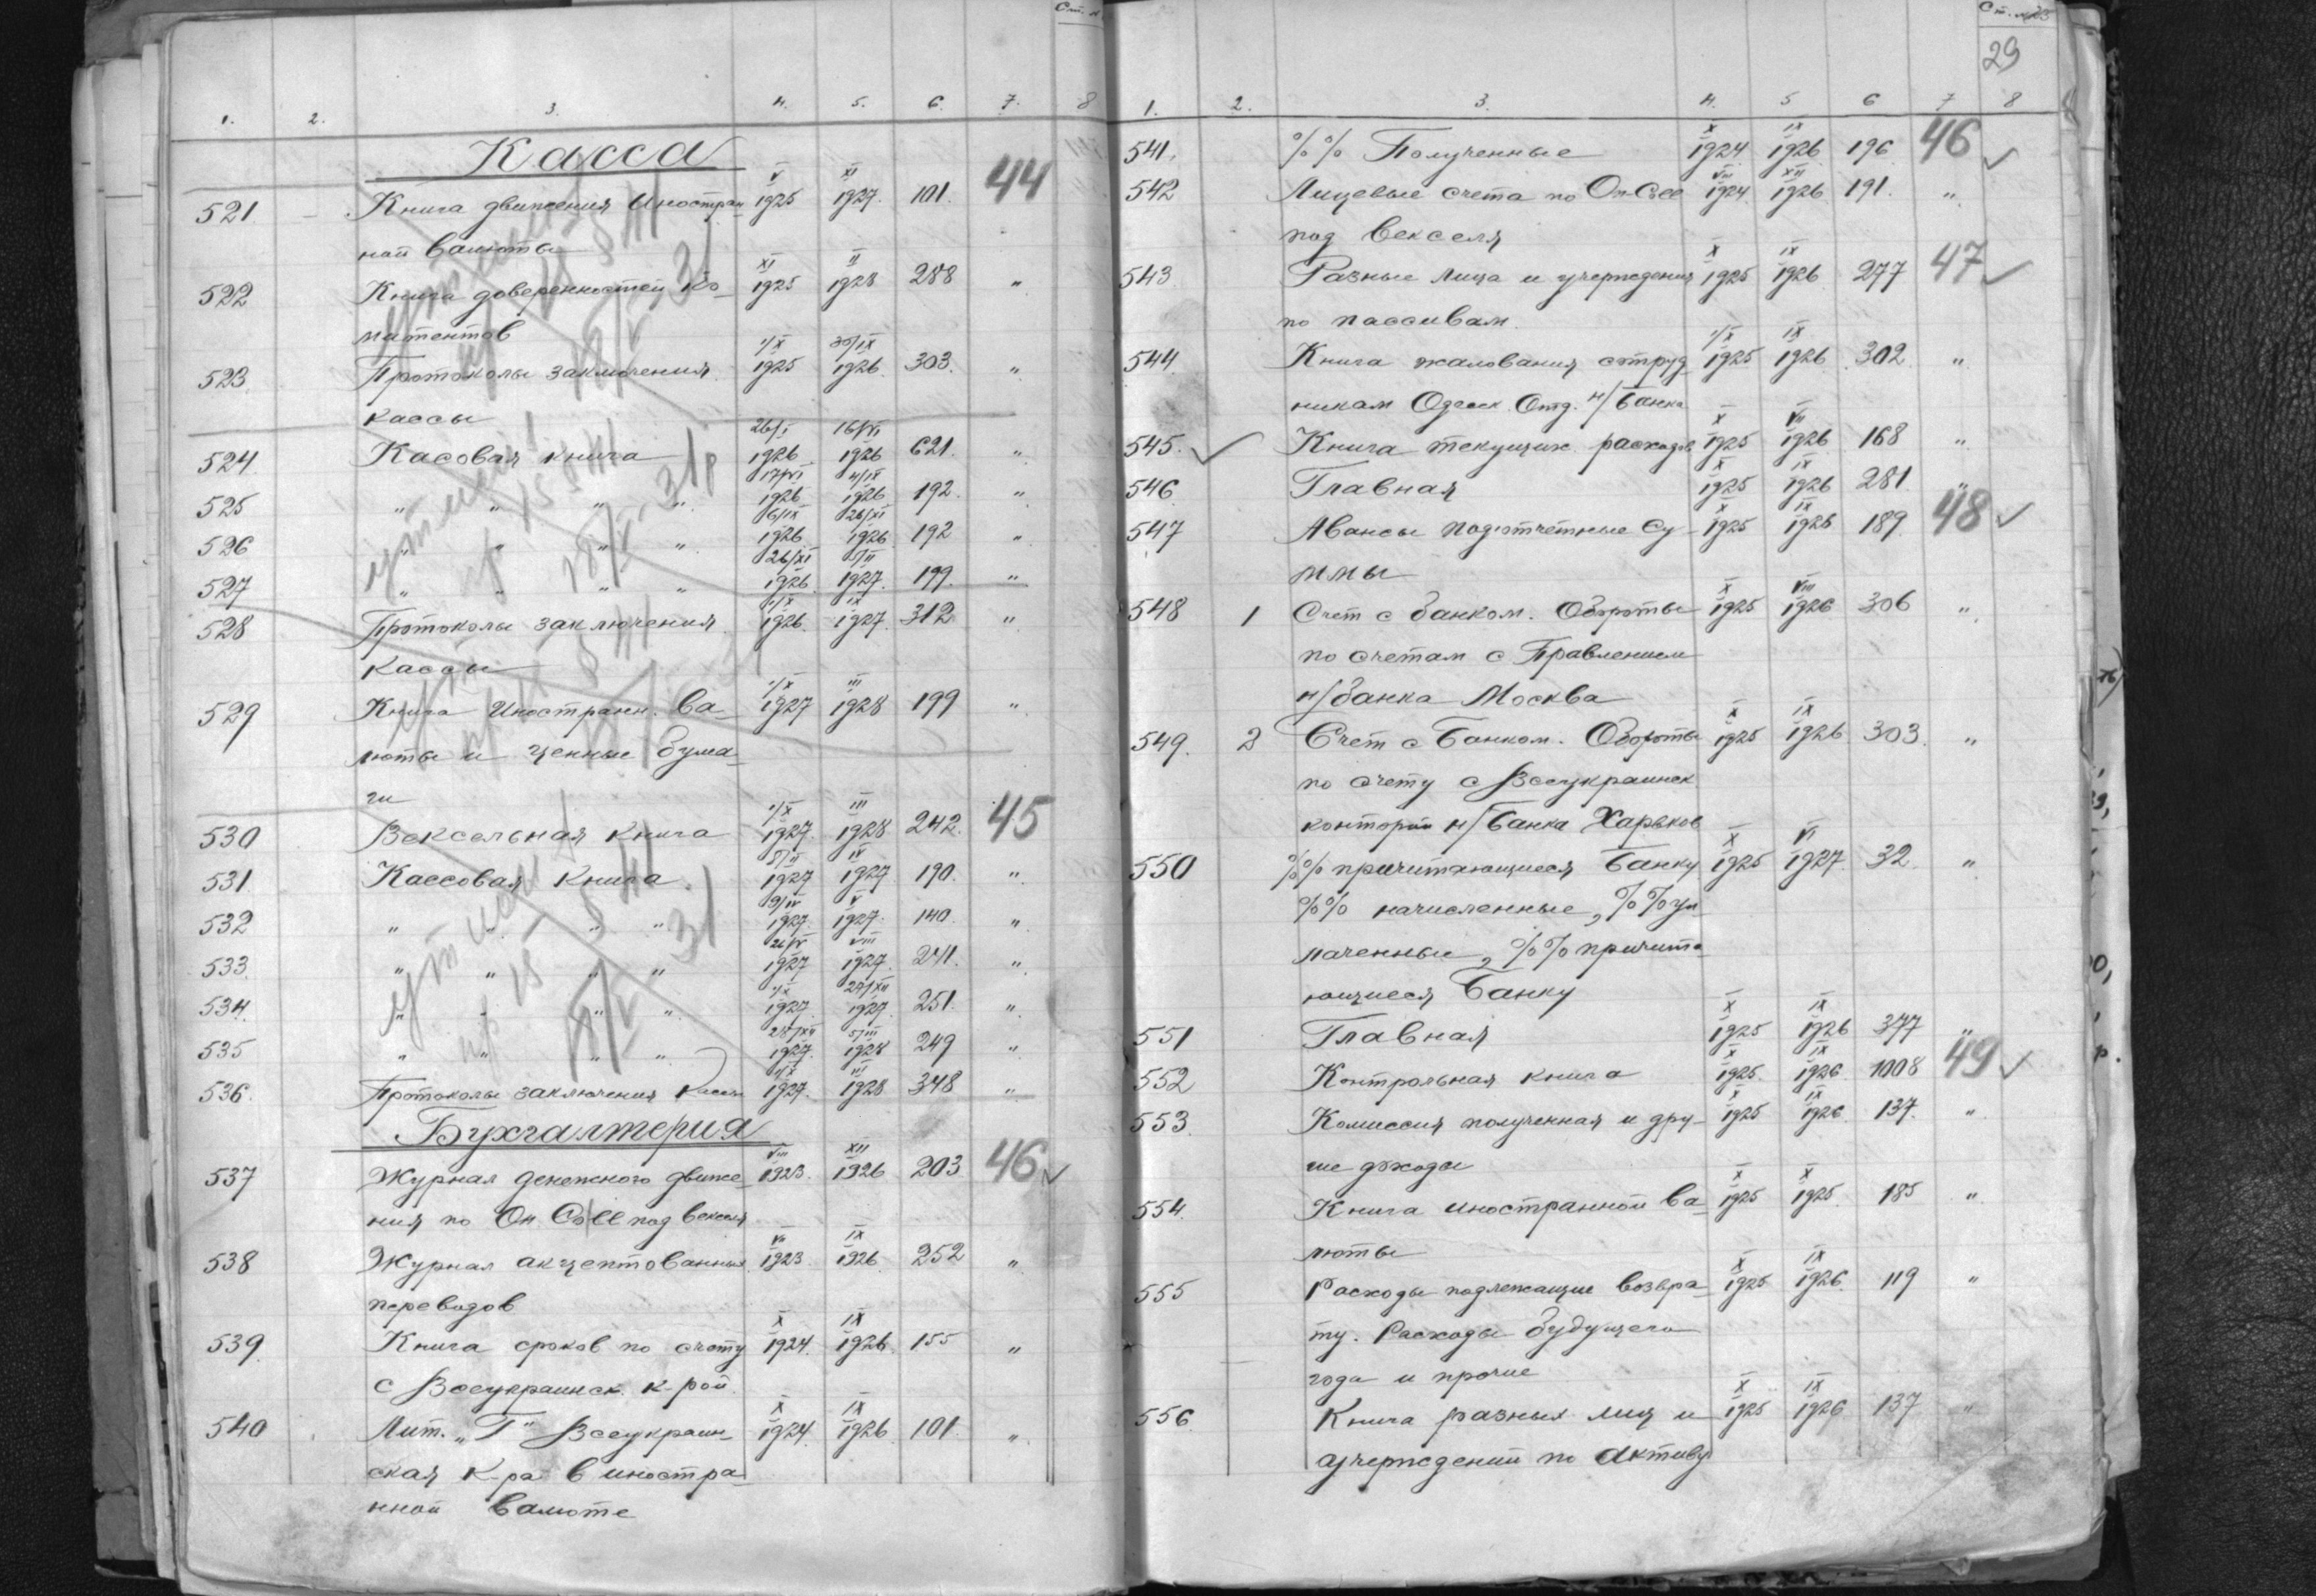 1. 2. 3. 4. 5. 6. 7. 8
Касса
521. Книга движения Иностран- V 1925 XI 1927. 101. 44
ной валюты
522 Книга доверенностей Ко- XI 1925 II 1928 288 "
митентов
523. Протоколы заключения 1/X 1925 30/IX 1926 303. "
кассы
524. Касовая книга 26/I 1926 16/VI 1926 621. "
525 " " " " 17/VI 1926 4/IX 1926 192. "
526 " " " " 6/IX 1926 26/XI 1926 192 "
527 " " " " 26/XI 1926 5/II 1927. 199. "
528 Протоколы заключения 1/X 1926 IX 1927. 312 "
кассы
529 Книга Иностранн. ва- 1/X 1927 III 1928 199 "
люты и ценные бума-
ги
530 Вексельная книга 1/X 1927. III 1928 242. 45
531. Кассовая книга 5/II 1927 IV 1927 190. "
532 " " " " 9/IV 1927. V 1927. 140. "
533. " " " " 1927 VIII 1927. 241. "
534. " " " " 1/X 1927. 27/XII 1927. 251. "
535 " " " " 28/XII 1927. 5/III 1928 249 "
536. Протоколы заключения кассы 1/X 1927. III 1928 348 "
Бухгалтерия
537 Журнал денежного движе- VIII 1923. XII 1926 203 46 ✓
ния по Он Coll под векселя
538 Журнал акцептованных 1923. IX 1926. 252 "
переводов
539. Книга сроков по счету X 1924. IX 1926. 155 "
с Всеукраинск. к-рой.
540 Лит. "Г" Всеукраин- X 1924. IX 1926 101. "
ская К-ра в иностра-
нной валюте
29
1. 2. 3. 4. 5 6 7 8
541. %% Полученные X 1924. IX 1926. 196 46 ✓
542 Лицевые счета по Он-Coll VIII 1924. XII 1926. 191. "
под векселя
543. Разные лица и учреждения X 1925 IX 1926. 277 47 ✓
по пассивам.
544. Книга жалования сотруд- 1/X 1925 IX 1926. 302. "
никам Одесск. Отд. н/Банка
545. ✓ Книга текущих расходов X 1925 VII 1926. 168 "
546. Главная X 1925 IX 1926 281. "
547 Авансы подотчетные су- X 1925 IX 1926 189. 48 ✓
ммы
548 1 Счет с банком. Обороты X 1925 VIII 1926 306 "
по счетам с Правлением
н/банка Москва
549. 2 Счет с Банком. Обороты X 1925 IX 1926 303. "
по счету с Всеукраинск
конторой н/Банка Харьков
550 %% причитающиеся Банку X 1925 VI 1927. 32. "
%% начисленные, %% уп-
лаченные, %% причита-
ющиеся Банку
551 Главная X 1925 IX 1926 377 "
552 Контрольная книга X 1925. IX 1926. 1008 49 ✓
553. Комиссия полученная и дру- X 1925 IX 1926 137. "
гие доходы
554. Книга иностранной ва- X 1925 X 1925. 185 "
люты
555 Расходы подлежащие возвра- X 1925 IX 1926. 119 "
ту. Расходы будущего
года и прочие
556. Книга разных лиц и X 1925 IX 1926 137 "
учреждений по активу